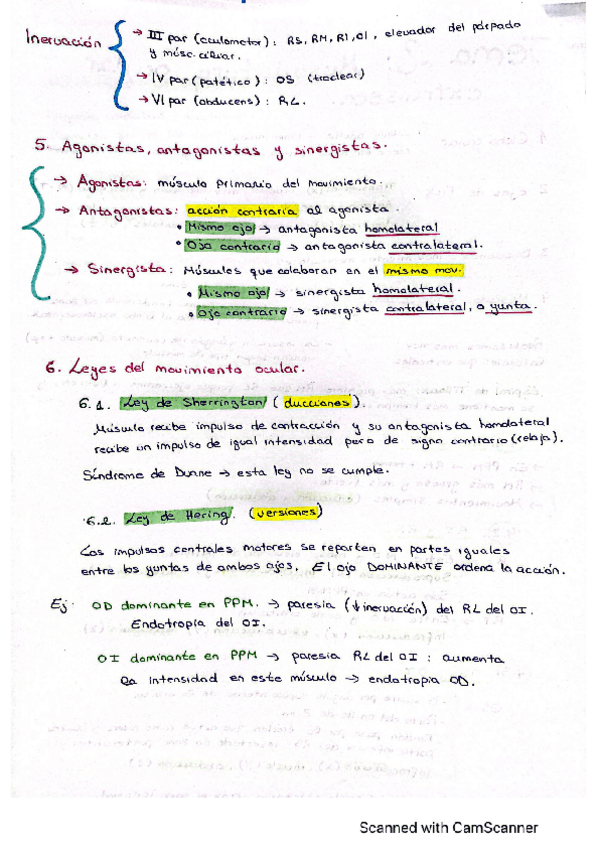 Inervación
→ III par (oculomotor): RS, RM, RI, OI, elevador del párpado
y músc. ciliar.
→ IV par (patético): OS (troclear)
→ VI par (abducens): RL.
5. Agonistas, antagonistas y sinergistas.
→ Agonistas: músculo primario del movimiento.
→ Antagonistas: acción contraria al agonista.
• Mismo ojo → antagonista homolateral
• Ojo contrario → antagonista contralateral.
→ Sinergista: Músculos que colaboran en el mismo mov.
• Mismo ojo → sinergista homolateral.
• Ojo contrario → sinergista contralateral, o yunta.
6. Leyes del movimiento ocular.
6.1. Ley de Sherrington (ducciones).
Músculo recibe impulso de contracción y su antagonista homolateral
recibe un impulso de igual intensidad pero de signo contrario (relaja).
Síndrome de Duane → esta ley no se cumple.
6.2. Ley de Hering. (versiones)
Los impulsos centrales motores se reparten en partes iguales
entre los yuntas de ambos ojos. El ojo DOMINANTE ordena la acción.
Ej: OD dominante en PPM. → paresia (↓inervación) del RL del OI.
Endotropía del OI.
OI dominante en PPM → paresia RL del OI: aumenta
la intensidad en este músculo → endotropia OD.
Scanned with CamScanner